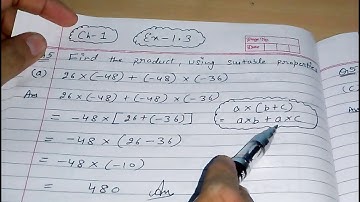 Ch-1 Ex-1.3
Page No.
Date
Q5 Find the product, using suitable properties
(a) 26×(-48) + (-48) × (-36)
Ans 26×(-48) + (-48) × (-36)
= -48×[26+(-36)]
= -48 × (26-36)
= -48 × (-10)
= 480 Ans
a×(b+c)
= a×b + a×c
Q5
(c)